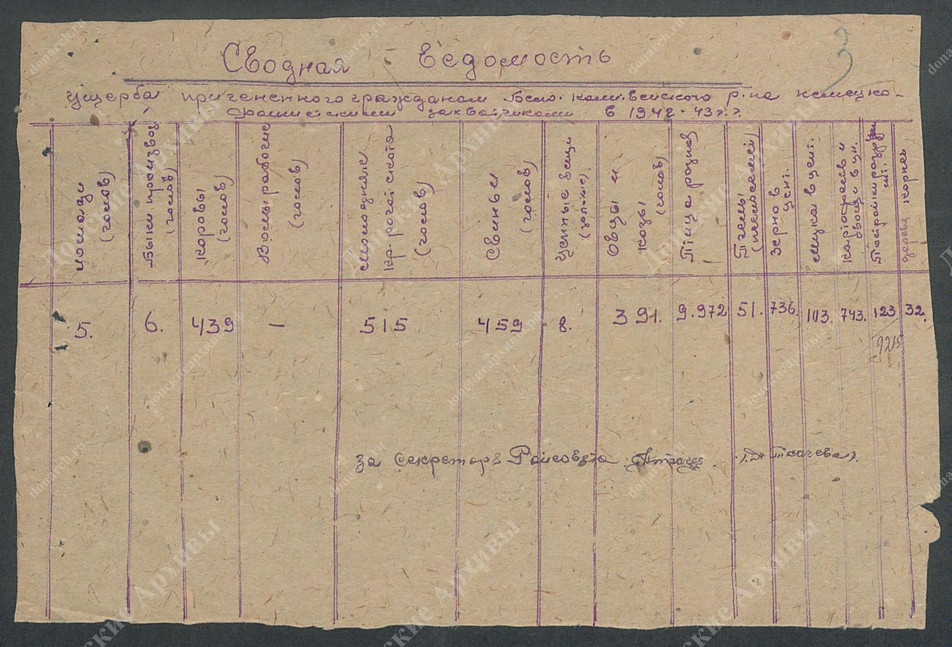 3
Сводная ведомость
ущерба причененного гражданам Бело. Калитвенского р-на немецко-
фашисткими захватчиками в 1942-43 г.г.
лошади (голов)
Быки производ (голов)
Коровы (голов)
Волы рабочие (голов)
Молодняк кр. рогат. скота (голов)
Свиньи (голов)
Ценные вещи
Овцы и козы (голов)
Птица разная
Пчелы (пчелосемей)
Зерно в цент.
Мука в цент.
Картофель и овощи в цн.
Постройки разн. шт.
5.
6.
439
—
515
459
8.
391.
9.972
51.
736.
113.
743.
123
32.
9215
за Секретаря Райсовета (Ткачева).
donarch.ru
Донские Архивы